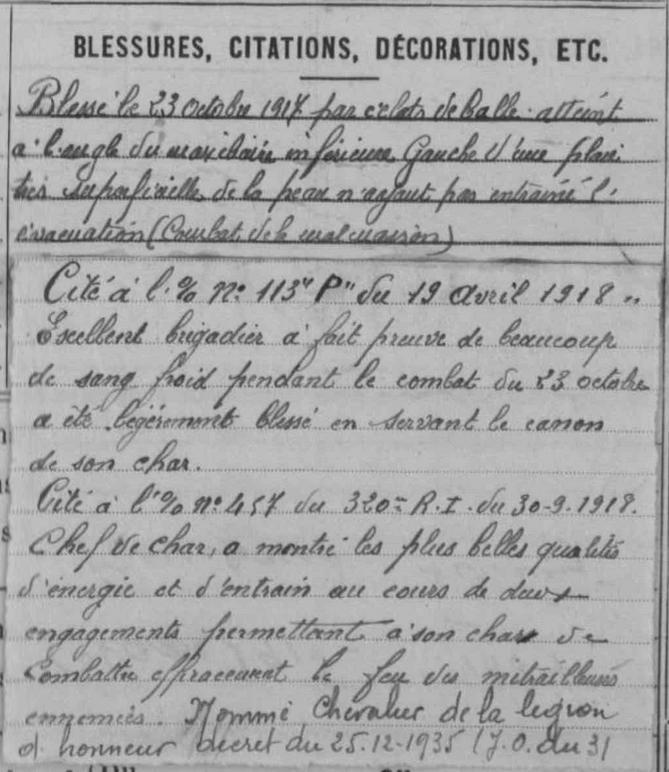 BLESSURES, CITATIONS, DÉCORATIONS, ETC.
Blessé le 23 octobre 1917 par éclats de balle atteint
à l'angle du maxillaire inférieure Gauche d'une plaie
très superficielle de la peau n'ayant pas entrainé l'
évacuation (Combat de la malmaison)
Cité à l'% N° 113 "P" du 19 avril 1918 "
Excellent brigadier a fait preuve de beaucoup
de sang froid pendant le combat du 23 octobre
a été légèrement blessé en servant le canon
de son char.
Cité à l'% n° 457 du 320me R.I. du 30-9-1918.
Chef de char, a montré les plus belles qualités
d'énergie et d'entrain au cours de deux
engagements permettant à son char de
combattre efficacement le feu des mitrailleuses
ennemies. Nommé Chevalier de la legion
d'honneur decret du 25-12-1935 (J.O. du 31